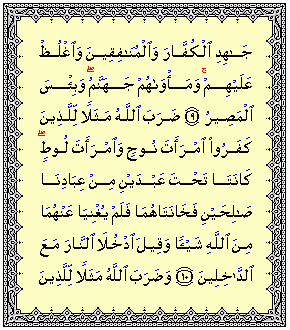 جَـٰهِدِ ٱلْكُفَّارَ وَٱلْمُنَـٰفِقِينَ وَٱغْلُظْ
عَلَيْهِمْ ۚ وَمَأْوَىٰهُمْ جَهَنَّمُ ۖ وَبِئْسَ
ٱلْمَصِيرُ ۝٩ ضَرَبَ ٱللَّهُ مَثَلًا لِّلَّذِينَ
كَفَرُوا۟ ٱمْرَأَتَ نُوحٍ وَٱمْرَأَتَ لُوطٍ ۖ
كَانَتَا تَحْتَ عَبْدَيْنِ مِنْ عِبَادِنَا
صَـٰلِحَيْنِ فَخَانَتَاهُمَا فَلَمْ يُغْنِيَا عَنْهُمَا
مِنَ ٱللَّهِ شَيْـًٔا وَقِيلَ ٱدْخُلَا ٱلنَّارَ مَعَ
ٱلدَّٰخِلِينَ ۝١٠ وَضَرَبَ ٱللَّهُ مَثَلًا لِّلَّذِينَ